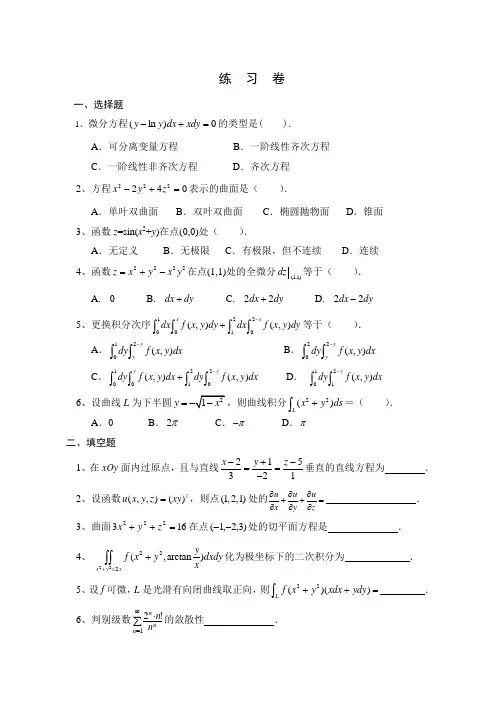 练 习 卷
一、选择题
1、微分方程(y − ln y)dx + xdy = 0的类型是( ).
A．可分离变量方程 B．一阶线性齐次方程
C．一阶线性非齐次方程 D．齐次方程
2、方程x² − 2y² + 4z² = 0表示的曲面是（ ）.
A．单叶双曲面 B．双叶双曲面 C．椭圆抛物面 D．锥面
3、函数z=sin(x²+y)在点(0,0)处（ ）.
A．无定义 B．无极限 C．有极限，但不连续 D．连续
4、函数z = x² + y² − x²y²在点(1,1)处的全微分dz|₍₁,₁₎等于（ ）.
A. 0 B. dx + dy C. 2dx + 2dy D. 2dx − 2dy
5、更换积分次序∫₀¹dx∫₀ˣ f(x, y)dy + ∫₁²dx∫₀²⁻ˣ f(x, y)dy等于（ ）.
A．∫₀¹dy∫_y^{2−y} f(x, y)dx B．∫₀²dy∫_y^{2−y} f(x, y)dx
C．∫₀¹dy∫₀^y f(x, y)dx + ∫₁²dy∫₀^{2−y} f(x, y)dx D． ∫₀¹dy∫₁^{2−y} f(x, y)dx
6、设曲线 L 为下半圆y = −√(1 − x²)，则曲线积分∫_L(x² + y²)ds＝（ ）.
A．0 B．2π C．−π D．π
二、填空题
1、在xOy 面内过原点，且与直线(x − 2)/3 = (y + 1)/(−2) = (z − 5)/1垂直的直线方程为 .
2、设函数u(x, y, z) = (xy)^z，则点(1, 2, 1)处的∂u/∂x + ∂u/∂y + ∂u/∂z = .
3、曲面3x² + y² + z² = 16在点(−1,−2,3)处的切平面方程是 .
4、 ∬_{x²+y²≤2x} f(x² + y², arctan y/x)dxdy化为极坐标下的二次积分为 .
5、设f 可微，L 是光滑有向闭曲线取正向，则∫_L f(x² + y²)(xdx + ydy) = .
6、判别级数∑_{n=1}^∞ 2ⁿ·n!/nⁿ的敛散性 .